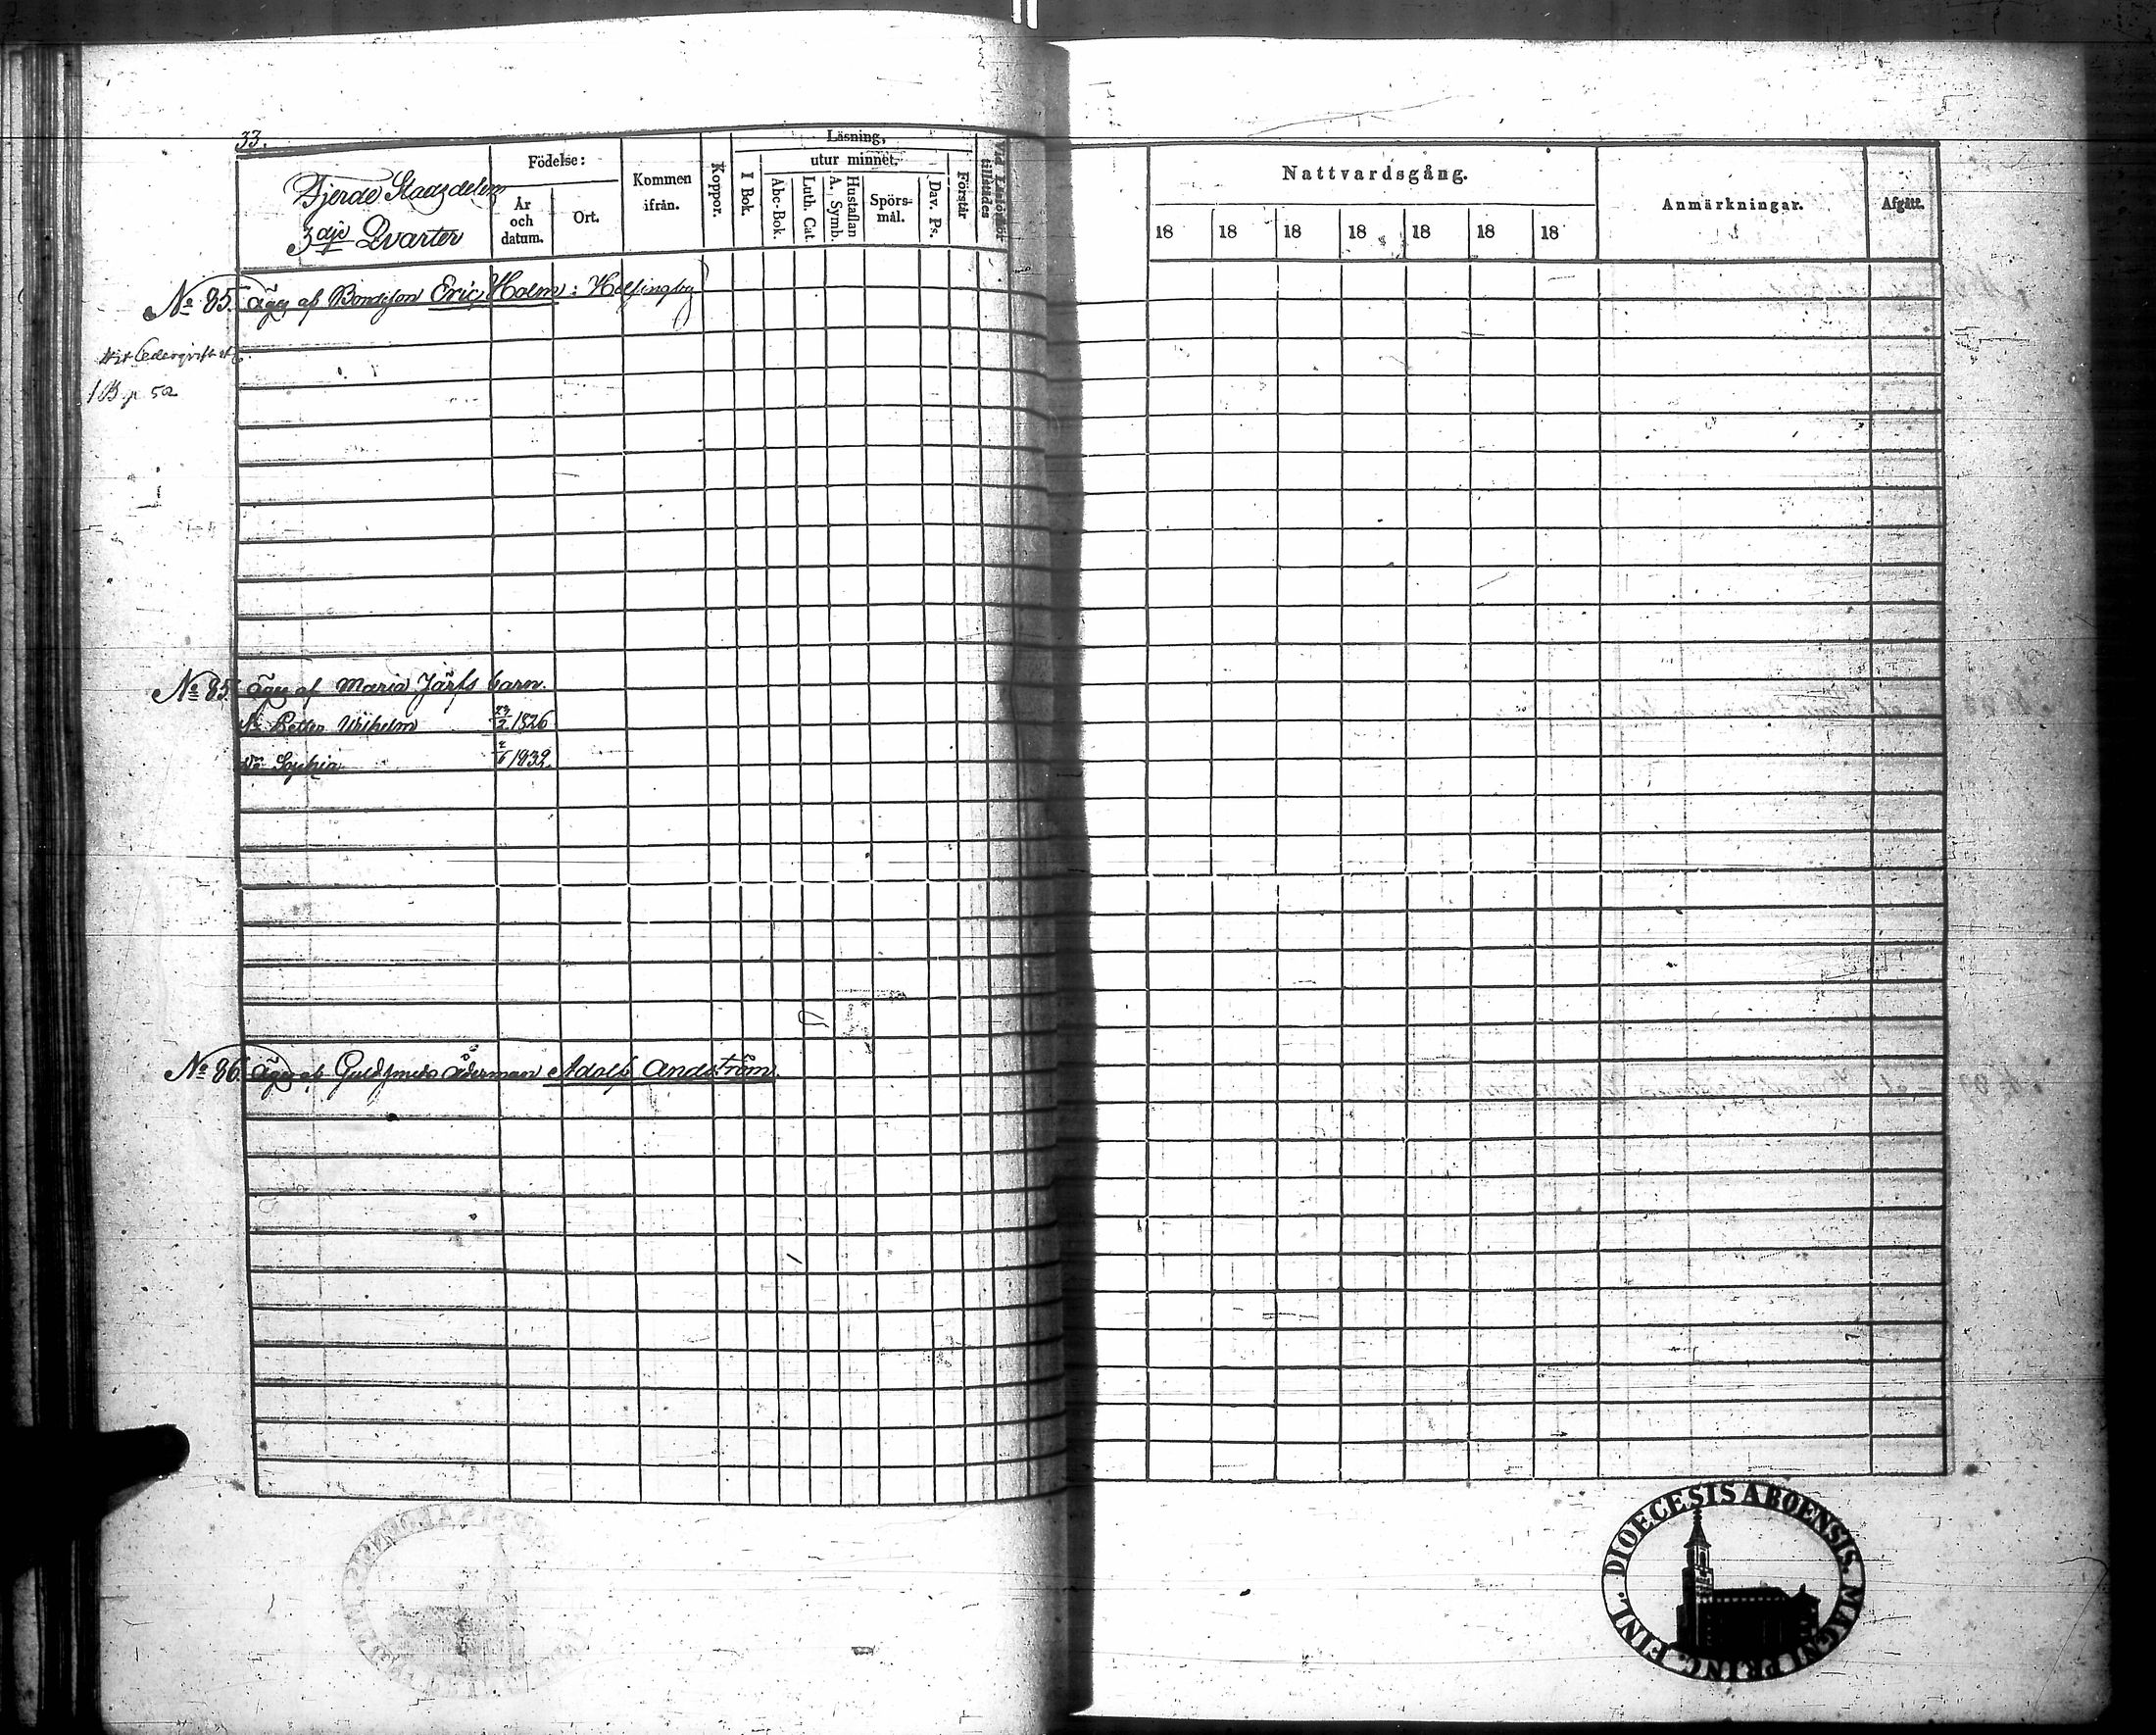 33.
Fjerde Stadsdelen
3dje Qvarter
Födelse:
År och datum.
Ort.
Kommen ifrån.
Koppor.
Läsning,
I Bok.
utur minnet.
Abc-Bok.
Luth. Cat.
A. Symb.
Hustaflan
Spörs-mål.
Dav. Ps.
Förstår
Vid Läsförhör tillstädes
Nattvardsgång.
18 18 18 18 18 18 18
Anmärkningar.
Afgått.
No 85. äges af Bondeson Eric Holm: Helsingby
1 B. p 52
No 85. äges af Maria Järfs barn.
Petter Wilhelm 1826
Sophia 1832.
No 86. äges af Guldsmeds Ålderman Adolf Andström
DIOECESIS ABOENSIS. MAGNI PRINC. FINL.